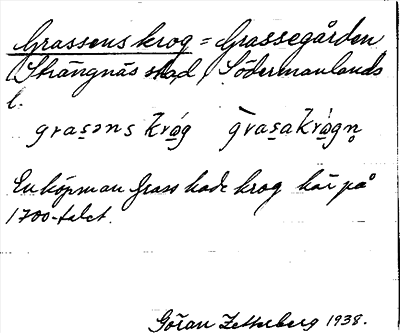 Grassens krog = Grassegården
Strängnäs stad Södermanlands
l.
grasəns krog grasakrogn
En köpman Grass hade krog här på
1700-talet.
Göran Zetterberg 1938.